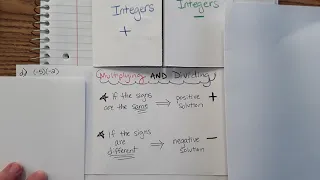 Integers
+
Integers
−
d) (-5)(-2)
Multiplying AND Dividing
∗ If the signs are the same ⇒ positive solution +
∗ If the signs are different ⇒ negative solution −